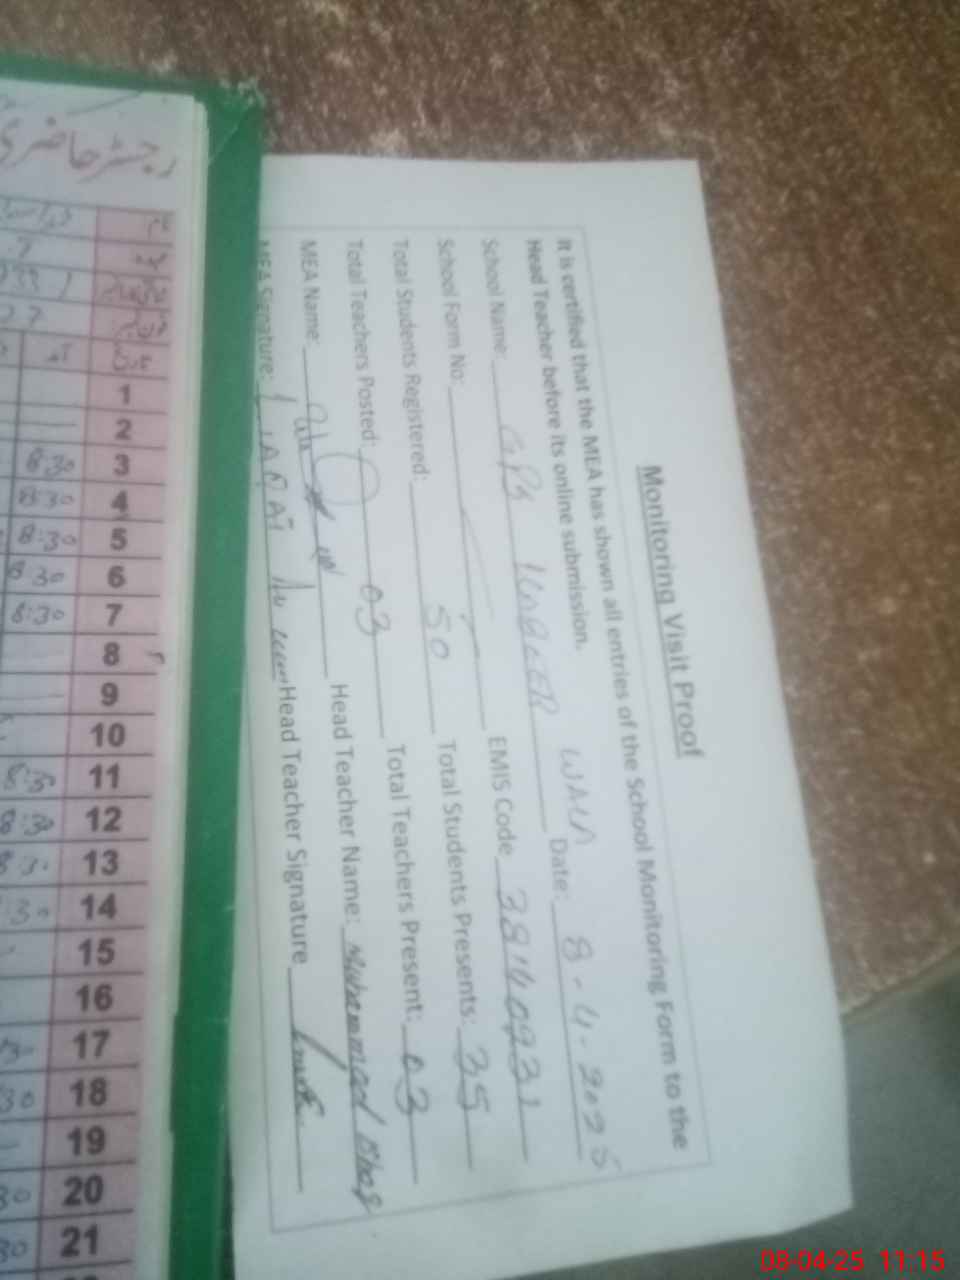 Monitoring Visit Proof
It is certified that the MEA has shown all entries of the School Monitoring Form to the
Head Teacher before its online submission.
School Name: GPS WALA Date: 8-4-2025
School Form No: EMIS Code 38140931
Total Students Registered: 50 Total Students Presents: 35
Total Teachers Posted: 03 Total Teachers Present: 03
MEA Name: Head Teacher Name: Muhammad
MEA Signature: LIAQAT Head Teacher Signature
رجسٹر حاضری
نام
عہدہ
تاریخ آمد
1
2
3 8:30
4 8:30
5 8:30
6 8:30
7 8:30
8
9
10
11 8:30
12 8:30
13
14
15
16
17
18
19
20
21
08-04-25 11:15